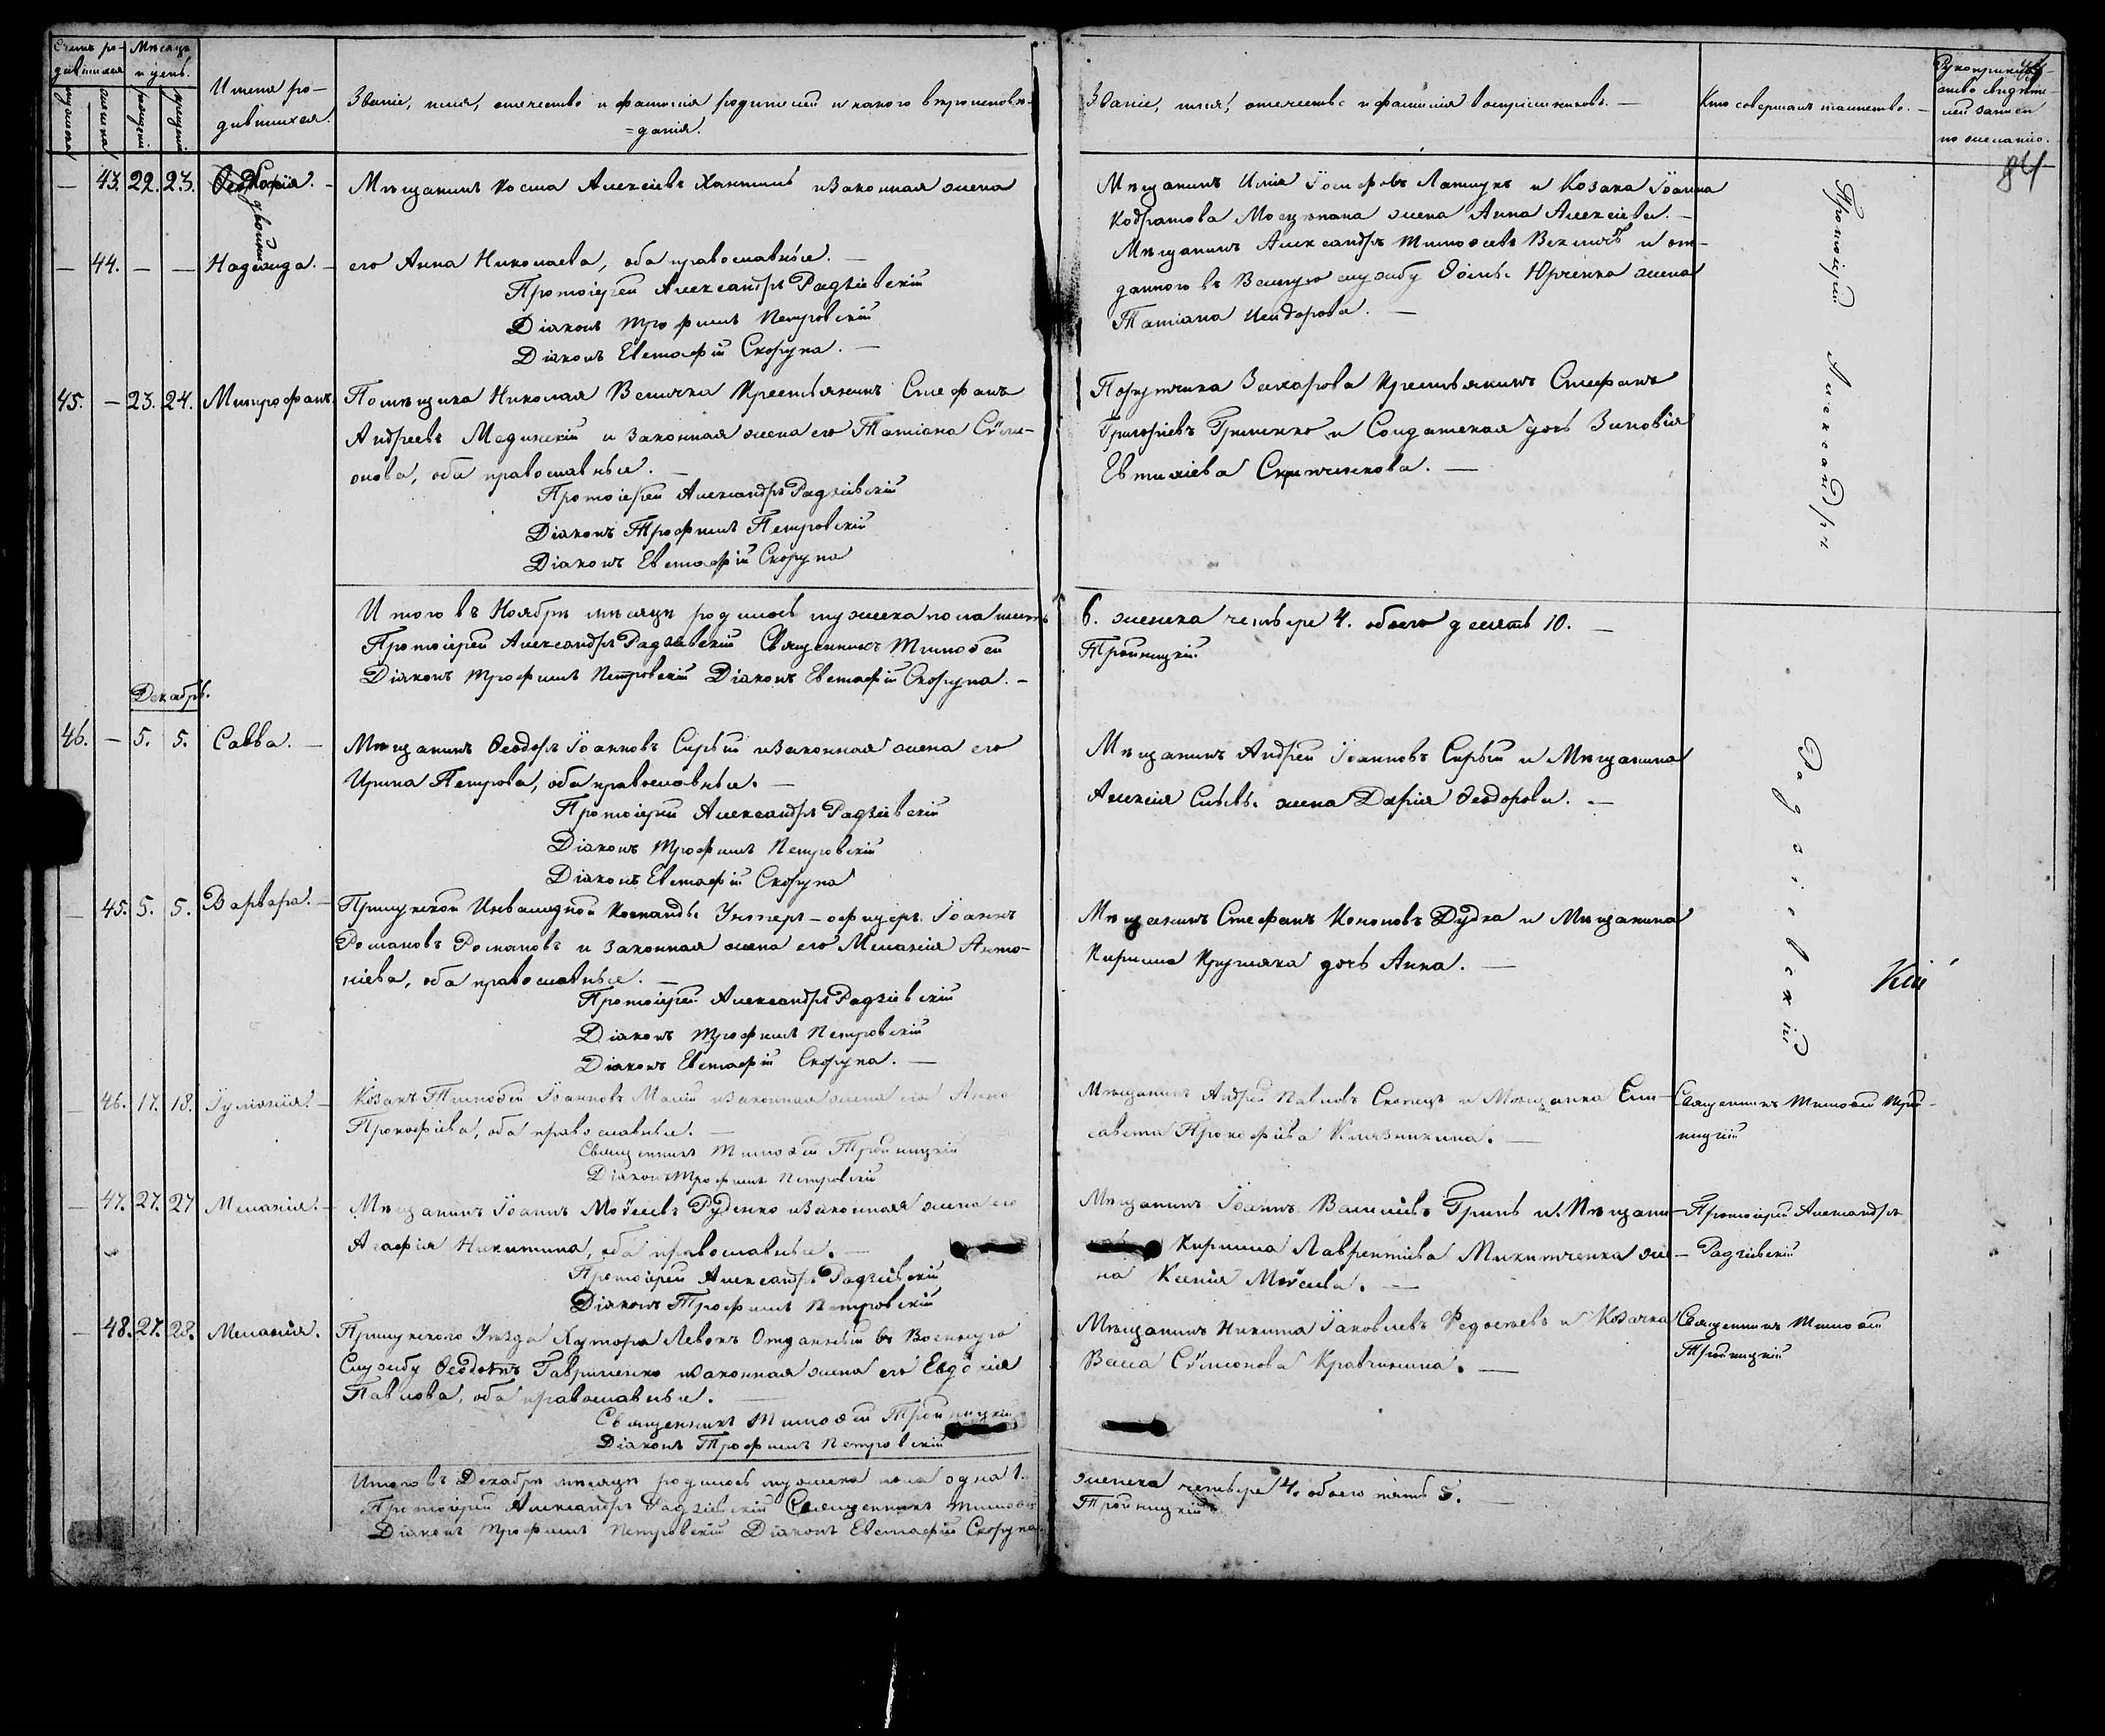 Счетъ ро-
дившихся
Мѣсяцъ
и день.
мужеска
женска
рожденія
крещенія
Имена ро-
дившихся.
Званіе, имя, отчество и фамилія родителей и какого вѣроисповѣ-
=данія.
Званіе, имя, отчество и фамилія воспріемниковъ. —
Кто совершалъ таинство. —
Рукоприклад-
ство свидѣте-
лей записи
по желанію.
84
— 43. 22. 23.
двойни
Мѣщанинъ Косма Алексіевъ и законная жена
Мѣщанинъ Илія Іосифовъ Лащукъ и Козака Іоанна
Кодратова жена Анна Алексіева. —
— 44. — — Надежда. — его Анна Николаева, оба православные. —
Мѣщанинъ Александръ Тимоѳеевъ и от-
даннаго въ Военную службу Юрченка жена
Татіана Исидорова. —
Протоіерей Александръ Радзіевскій
Діаконъ Трофимъ Петровскій
Діаконъ Евстафій Скорупа. —
45. — 23. 24. Митрофанъ. Помѣщика Николая Велички Крестьянинъ Стефанъ
Андреевъ Мединскій и законная жена его Татіана Сѵме-
онова, оба православные. —
Протоіерей Александръ Радзіевскій
Діаконъ Трофимъ Петровскій
Діаконъ Евстафій Скорупа
Порутчика Захарова Крестьянинъ Стефанъ
Григоріевъ Гриненко и Солдатская дочь Зиновія
Евтихіева. —
Итого въ Ноябрѣ мѣсяцѣ родилось мужеска пола шесть
6. женска четыре 4. обоего десять 10. —
Протоіерей Александръ Радзіевскій Священникъ Тимоѳей
Тройницкій
Діаконъ Трофимъ Петровскій Діаконъ Евстафій Скорупа. —
Декабрь.
46. — 5. 5. Савва. — Мѣщанинъ Ѳеодоръ Іоанновъ Сирый и законная жена его
Ирина Петрова, оба православные. —
Протоіерей Александръ Радзіевскій
Діаконъ Трофимъ Петровскій
Діаконъ Евстафій Скорупа
Мѣщанинъ Андрей Іоанновъ Сирый и Мѣщанина
Алексія жена Дарія Ѳеодорова. —
— 45. 5. 5. Варвара. — Прилукской Инвалидной Команды Унтеръ-офицеръ Іоаннъ
Романовъ Романовъ и законная жена его Меланія Анто-
ніева, оба православные. —
Протоіерей Александръ Радзіевскій
Діаконъ Трофимъ Петровскій
Діаконъ Евстафій Скорупа. —
Мѣщанинъ Стефанъ Кононовъ Дудка и Мѣщанина
Кирилла Кругляка дочь Анна. —
Протоіерей Александръ Радзіевскій
кій
— 46. 17. 18. Іуліанія. — Козакъ Тимоѳей Іоанновъ Малій и законная жена его Анна
Прокофіева, оба православные. —
Священникъ Тимоѳей Тройницкій
Діаконъ Трофимъ Петровскій
Мѣщанинъ Андрей Павловъ Скопецъ и Мѣщанка Ели-
савета Прокофіева. —
Священникъ Тимоѳей Трой-
ницкій
— 47. 27. 27 Меланія. — Мѣщанинъ Іоаннъ Моѵсеевъ Руденко и законная жена его
Агафія Никитина, оба православные. —
Протоіерей Александръ Радзіевскій
Діаконъ Трофимъ Петровскій
Мѣщанинъ Іоаннъ Василіевъ Гринь и Мѣщани-
Кирилла Лаврентіева Микитченка же-
на Ксенія Моѵсеева. —
Протоіерей Александръ
Радзіевскій
— 48. 27. 28. Меланія. Прилукского Уѣзда Хутора Левокъ Отданный въ Военную
Службу Гавриленко и законная жена его Евдокія
Павлова, оба православные. —
Священникъ Тимоѳей Тройницкій
Діаконъ Трофимъ Петровскій
Мѣщанинъ Никита Іаковлевъ Федосіевъ и Козачка
Васса Сѵмеонова Кравчинина. —
Священникъ Тимоѳей
Тройницкій
Итого въ Декабрѣ мѣсяцѣ родилось мужеска пола одна 1.
женска четыре 4. обоего пять 5.
Протоіерей Александръ Радзіевскій Священникъ Тимоѳей
Тройницкій
Діаконъ Трофимъ Петровскій Діаконъ Евстафій Скорупа.